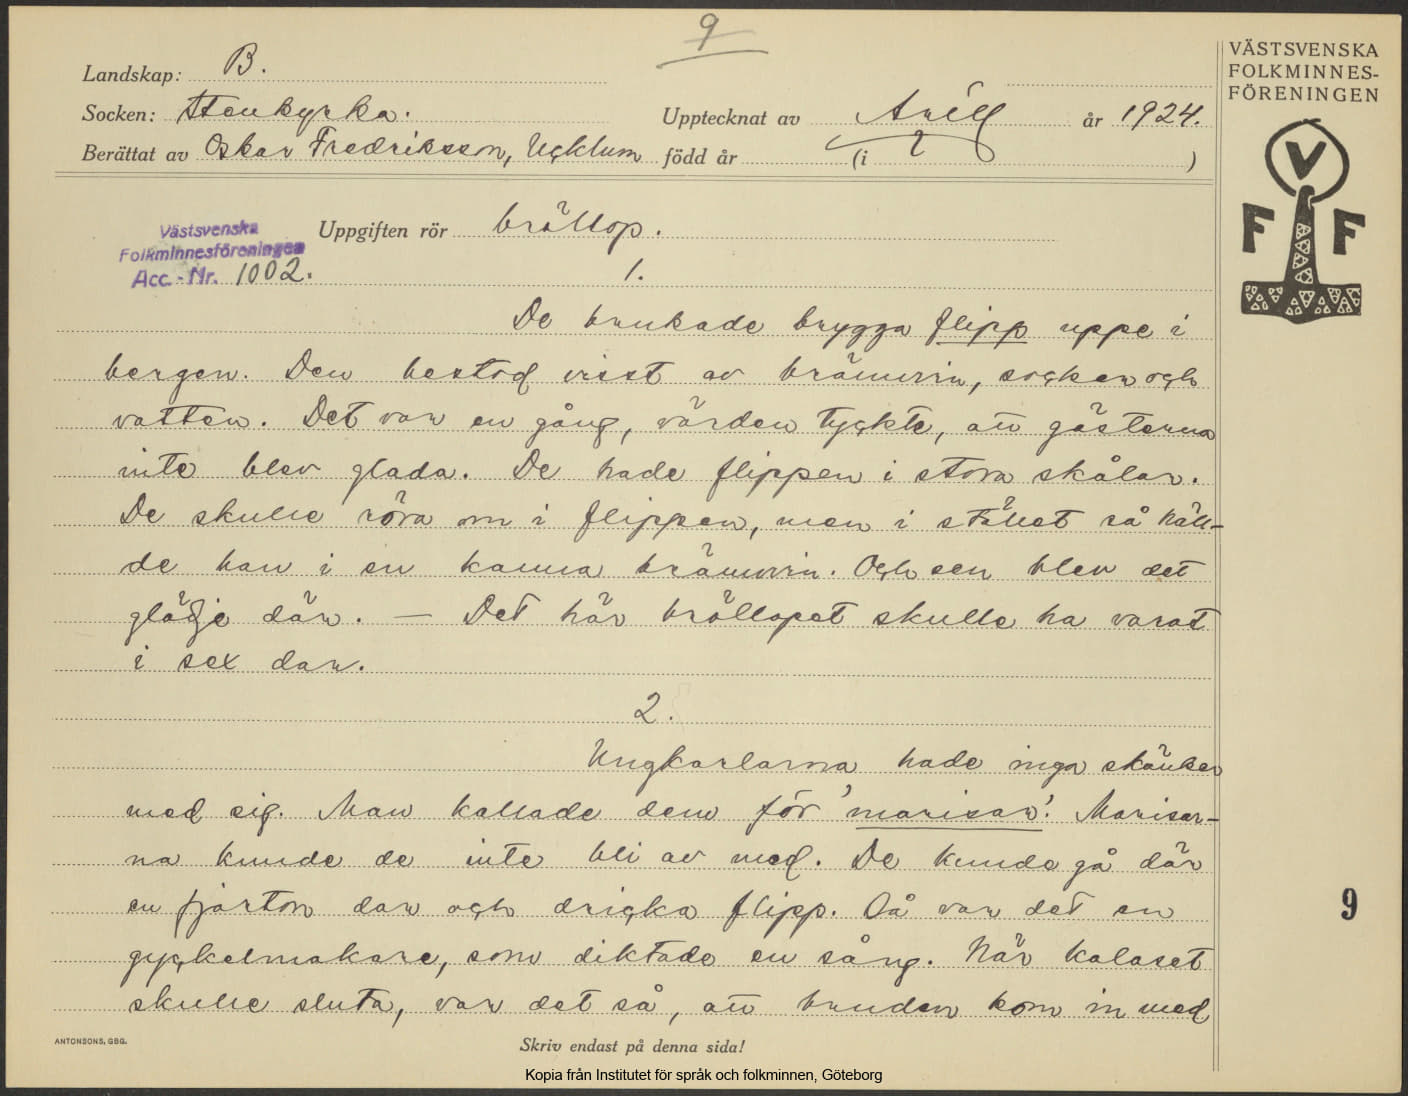 9
VÄSTSVENSKA
FOLKMINNES-
FÖRENINGEN
Landskap: B.
Socken: Stenkyrka.
Upptecknat av Arill år 1924.
Berättat av Oskar Fredriksson, Ucklum född år (i ? )
V
F F
Västsvenska
Folkminnesföreningen
Acc.-Nr. 1002.
Uppgiften rör bröllop.
1.
De brukade brygga flipp uppe i
bergen. Den bestod visst av brännvin, socker och
vatten. Det var en gång, värden tyckte, att gästerna
inte blev glada. De hade flippen i stora skålar.
De skulle röra om i flippen, men i stället så häll-
de han i en kanna brännvin. Och sen blev det
glädje där. — Det här bröllopet skulle ha varat
i sex dar.
2.
Ungkarlarna hade inga skänker
med sig. Man kallade dem för 'marisar'. Marisar-
na kunde de inte bli av med. De kunde gå där
en fjorton dar och dricka flipp. Då var det en
gyckelmakare, som diktade en sång. När kalaset
skulle sluta, var det så, att bruden kom in med
9
ANTONSONS, GBG.
Skriv endast på denna sida!
Kopia från Institutet för språk och folkminnen, Göteborg